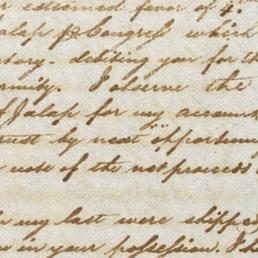 esteemed favor of 4th
Jalap p Congress which
debiting you for th
I observe the
f Jalap for my account
trust by next opportuni
note of the net proceeds
my last were shipped
in your possession. I h